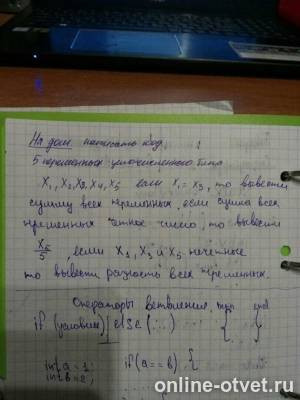 На дом. написать код
5 переменных целочисленного типа
X1, X2, X3, X4, X5 если x1 = x3, то вывести
сумму всех переменных, если сумма всех
переменных четное число, то вывести
X5/5, если X1, X3 и X5 нечетные
то вывести разность всех переменных.
Операторы ветвления.
if (условие) else (...) { }
int a = 1;
int b = 2;
if (a == b) {
online-otvet.ru